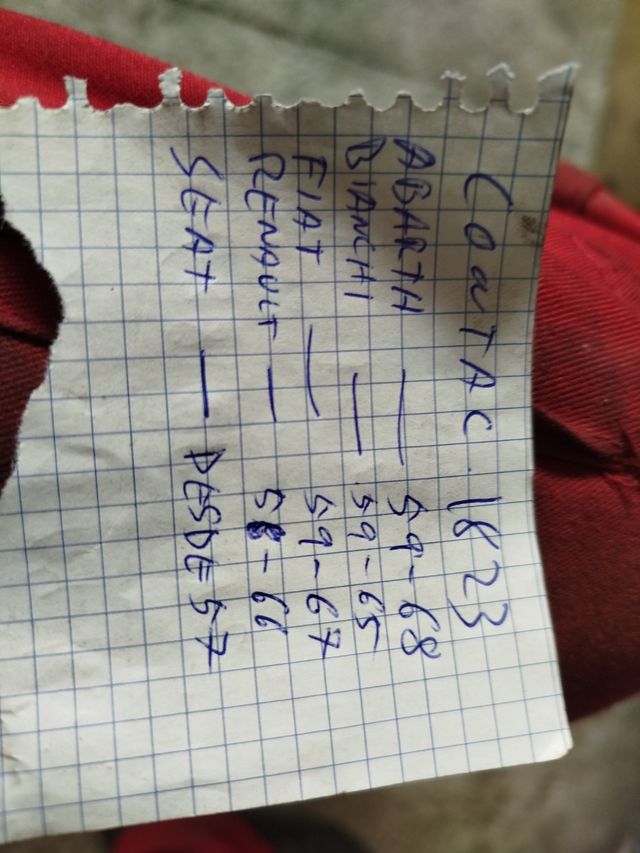 CONTAC 1823
ABARTH — 59-68
BIANCHI — 59-65
FIAT — 59-67
RENAULT — 58-66
SEAT — DESDE 57